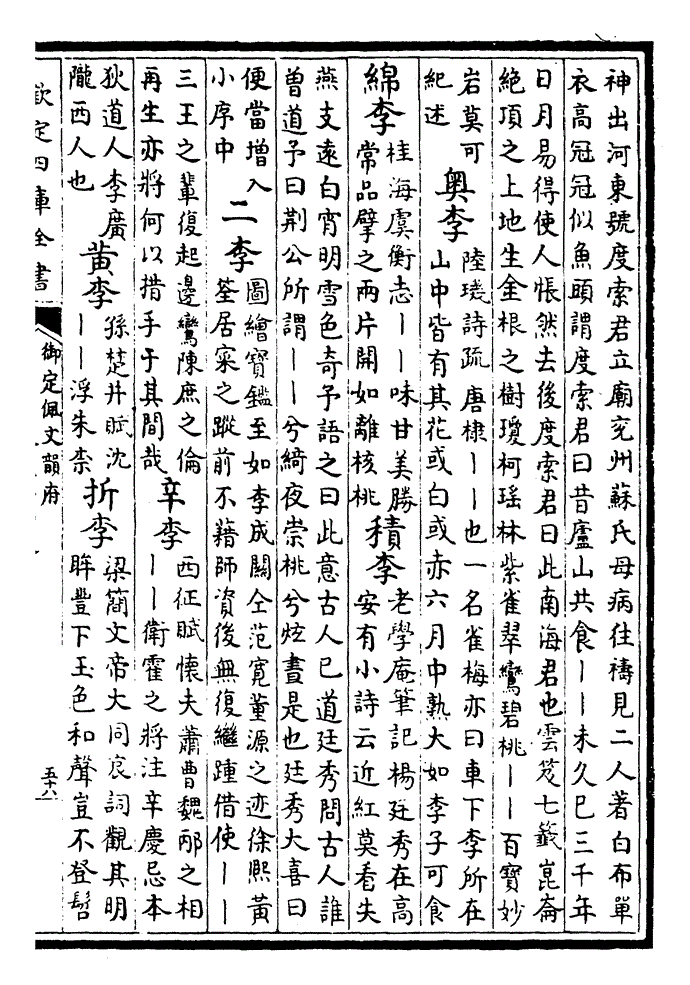 神出河東號度索君立廟兖州蘇氏母病往禱見二人著白布單
衣高冠冠似魚頭謂度索君曰昔廬山共食——未久已三千年
日月易得使人悵然去後度索君曰此南海君也雲笈七籖崑崙
絶頂之上地生金根之樹瓊柯瑤林紫雀翠鸞碧桃——百寶妙
岩莫可
紀述
奥李
陸璣詩疏唐棣——也一名雀梅亦曰車下李所在
山中皆有其花或白或赤六月中熟大如李子可食
綿李
桂海虞衡志——味甘美勝
常品擘之兩片開如離核桃
積李
老學庵筆記楊廷秀在高
安有小詩云近紅莫看失
燕支遠白宵明雪色奇予語之曰此意古人已道廷秀問古人誰
曽道予曰荆公所謂——兮綺夜崇桃兮炫晝是也廷秀大喜曰
便當增入
小序中
二李
圖繪寶鑑至如李成關仝范寛董源之迹徐熙黄
筌居寀之蹤前不藉師資後無復繼踵借使——
三王之輩復起邊鸞陳庶之倫
再生亦將何以措手于其間哉
辛李
西征賦懷夫蕭曹魏邴之相
——衛霍之將注辛慶忌本
狄道人李廣
隴西人也
黄李
孫楚井賦沈
——浮朱柰
折李
梁簡文帝大同哀詞觀其明
眸豐下玉色和聲豈不登髻
欽定四庫全書
御定佩文韻府
五十八